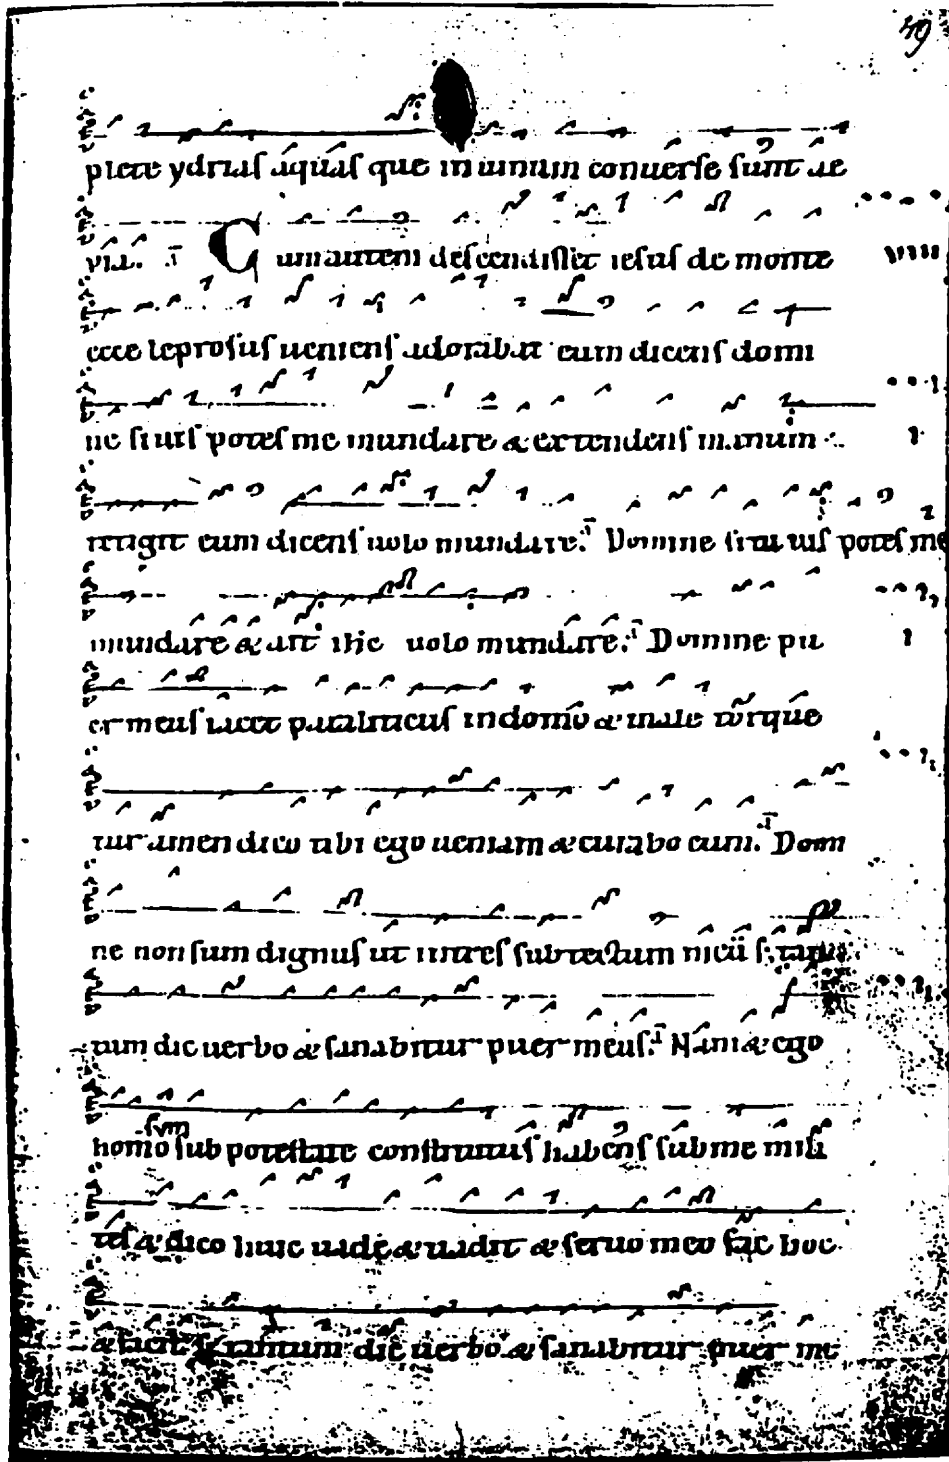 49
plete ydrias aquas que in uinum conuerse sunt ae
via. Cum autem descendisset iesus de monte
ecce leprosus ueniens adorabat eum dicens domi
ne si uis potes me mundare & extendens manum
tetigit eum dicens uolo mundare. Domine si tu uis potes me
mundare & ait ihc uolo mundare. Domine pu
er meus iacet paraliticus in domo & male torque
tur amen dico tibi ego ueniam & curabo eum. Domi
ne non sum dignus ut intres sub tectum meū s; tan
tum dic uerbo & sanabitur puer meus. Nam & ego
sum
homo sub potestate constitutus habens sub me mili
tes & dico huic uade & uadit & seruo meo fac hoc
& facit s; tantum dic uerbo & sanabitur puer me